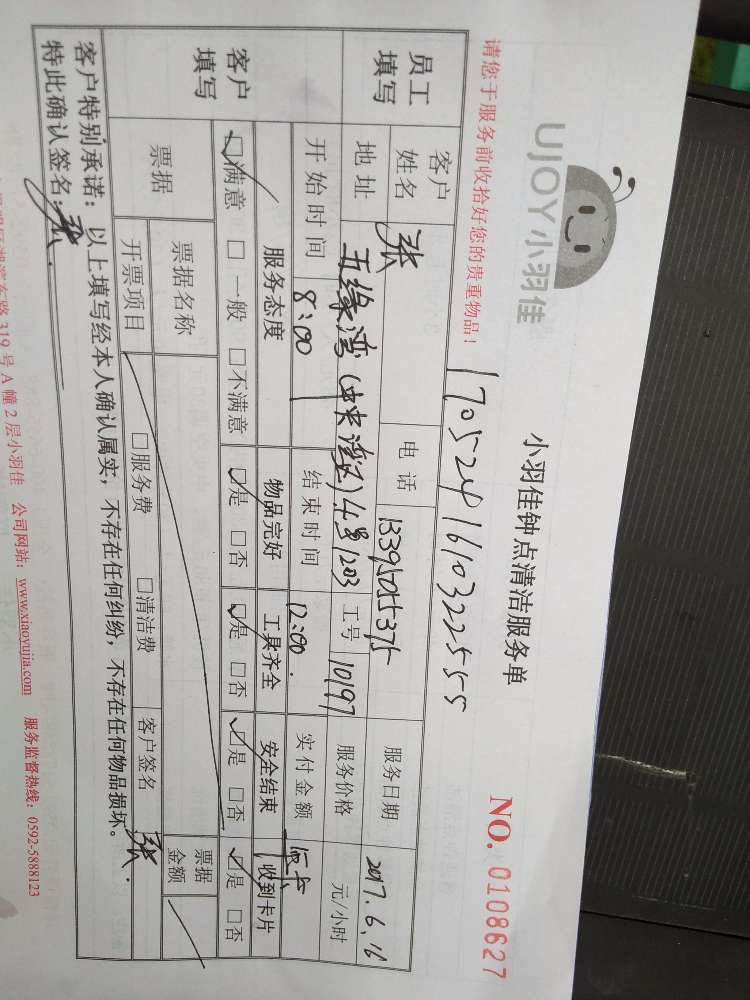 UJOY小羽佳
小羽佳钟点清洁服务单
NO. 0108627
请您于服务前收拾好您的贵重物品!
17052416103225555
员工填写
客户姓名 张 电话 13395015375 服务日期 2017.6.16
地址 五缘湾(中央湾区)4号1203 工号 10197 服务价格 元/小时
开始时间 8:00 结束时间 12:00. 实付金额
客户填写
服务态度 物品完好 工具齐全 安全结束 收到卡片
☑满意 □一般 □不满意 ☑是 □否 ☑是 □否 ☑是 □否 ☑是 □否
票据 票据名称 票据金额
开票项目 □服务费 □清洁费 客户签名 张
客户特别承诺:以上填写经本人确认属实,不存在任何纠纷,不存在任何物品损坏。
特此确认签名:张.
路319号A幢2层小羽佳 公司网站:www.xiaoyujia.com 服务监督热线:0592-5888123